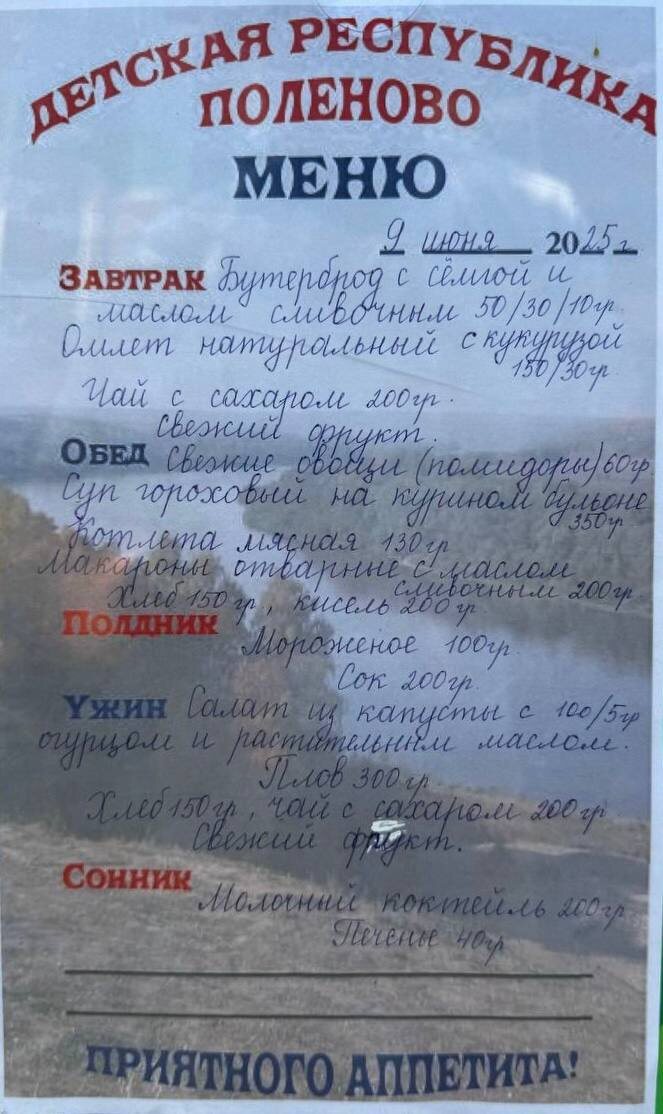 ДЕТСКАЯ РЕСПУБЛИКА
ПОЛЕНОВО
МЕНЮ
9 июня 2025 г
ЗАВТРАК Бутерброд с сёмгой и
маслом сливочным 50/30/10гр.
Омлет натуральный с кукурузой
150/30гр.
Чай с сахаром 200гр.
свежий фрукт.
ОБЕД Свежие овощи (помидоры) 60гр
Суп гороховый на курином бульоне
350гр
Котлета мясная 130гр
Макароны отварные с маслом
сливочным 200гр.
Хлеб 150гр, кисель 200гр
ПОЛДНИК
Мороженое 100гр.
Сок 200гр.
УЖИН Салат из капусты с 100/5гр
огурцом и растительным маслом.
Плов 300гр
Хлеб 150гр, чай с сахаром 200гр
Свежий фрукт.
СОННИК
Молочный коктейль 200гр.
Печенье 40гр
ПРИЯТНОГО АППЕТИТА!